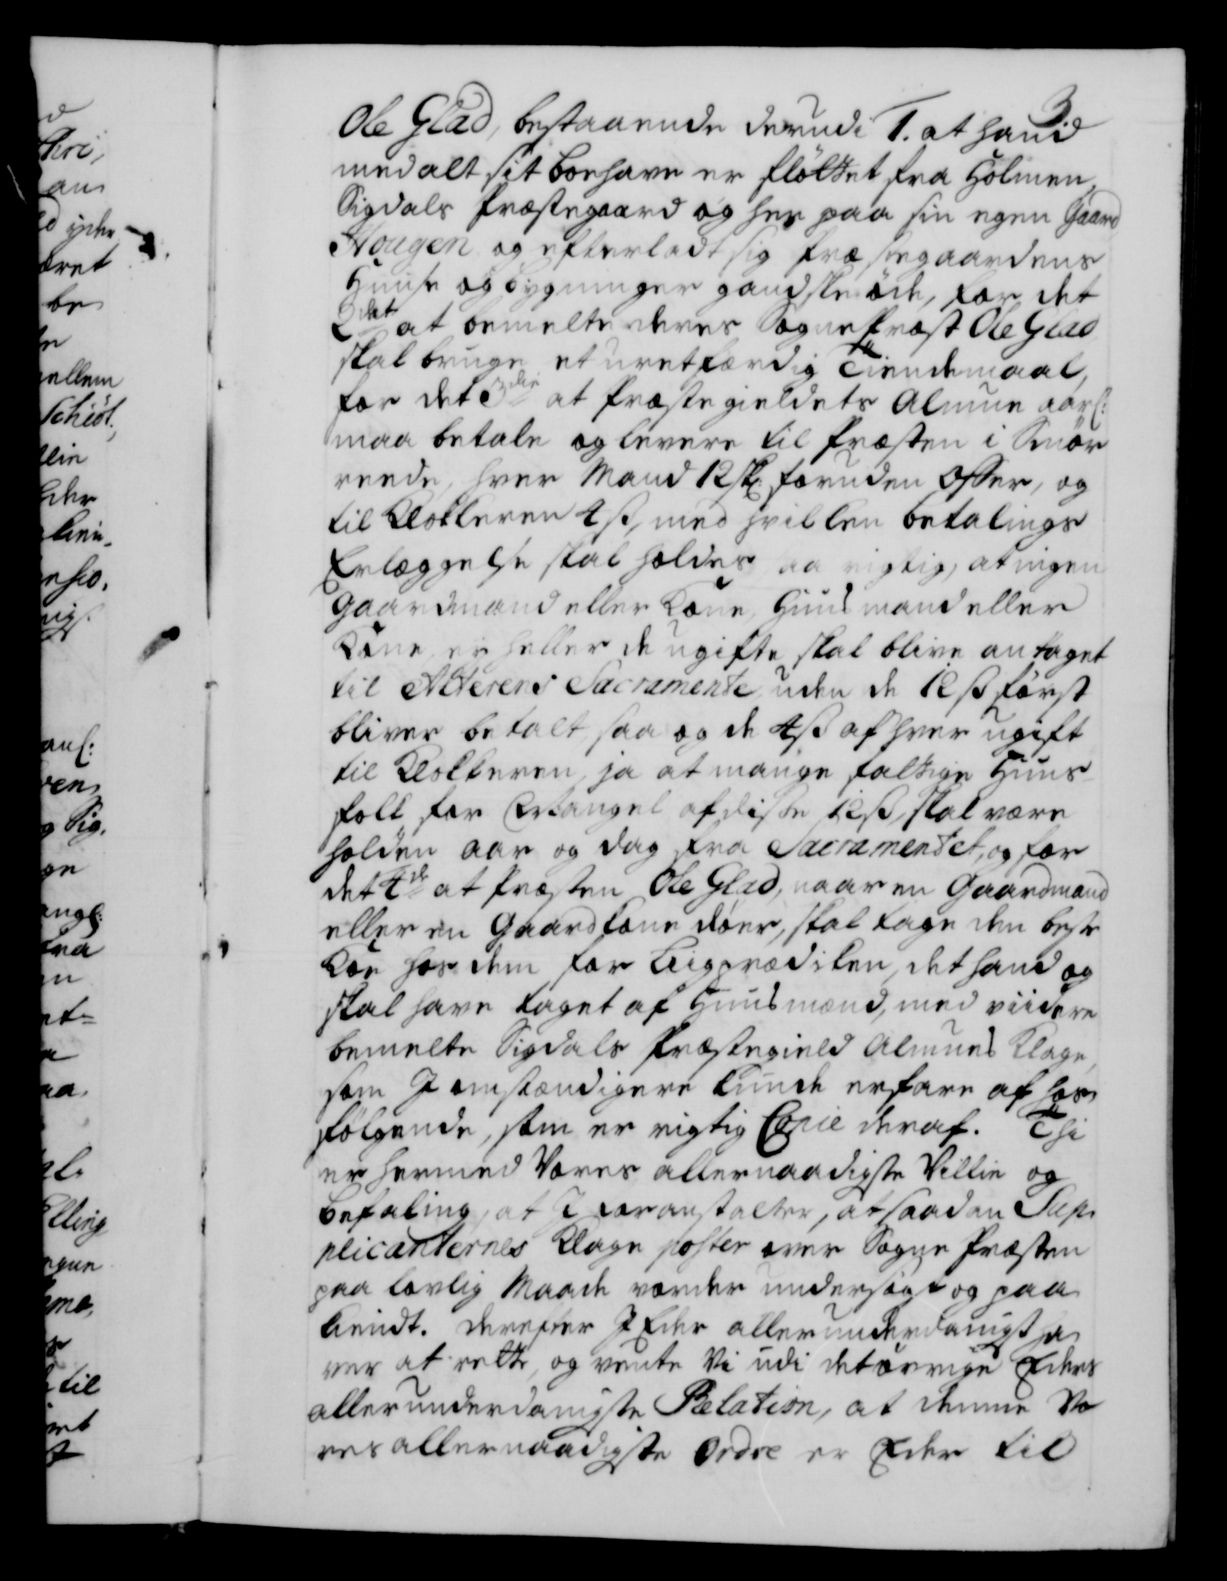 3.
Ole Glad, bestaaende derudi 1. at hand
med alt sit boehave er fløttet fra Holmen,
Sigdals Præstegaard og hen paa sin egen Gaard
Hougen og efterladt sig Præstegaardens
Huuse og bygninger gandske øde, for det
2det at bemelte deres Sognepræst Ole Glad
skal bruge et uretfærdig Tiendemaal,
for det 3die at Præstegieldets Almue aarl:
maa betale og levere til Præsten i Smør
reede, hver Mand 12 sk: foruden Offer, og
til Klokkeren 4 ß, med hvilken betalings
Erlæggelse skal holdes saa rigtig, at ingen
Gaardmand eller Kone, Huusmand eller
Kone, ej heller de ugifte skal blive antaget
til Alterens Sacramente uden de 12 ß først
bliver betalt, saa og de 4 ß af hver ugift
til Klokkeren, ja at mange fattige Huus-
folk for Mangel af disse 12 ß, skal være
holden Aar og dag fra Sacramentet, og for
det 4de at Præsten Ole Glad, naar en Gaardmand
eller en Gaardkone døer, skal tage den beste
Koe hos dem for Liigprædiken, det hand og
skal have taget af Huusmænd, med viidere
bemelte Sigdals Præstegield Almues Klage,
som I omstændigere kunde erfare af hos
følgende, som er rigtig Copie deraf. Thi
er hermed Vores allernaadigste Villie og
befaling, at I foranstalter, at saadan Sup-
plicanternes Klage poster over Sogne Præsten
paa lovlig Maade vorder undersøgt og paa
kiendt. Derefter I Eder allerunderdanigst ha
ver at rette, og vente Vi udi det øvrige Eders
allerunderdanigste Relation, at denne Vo
res allernaadigste Ordre er Eder til